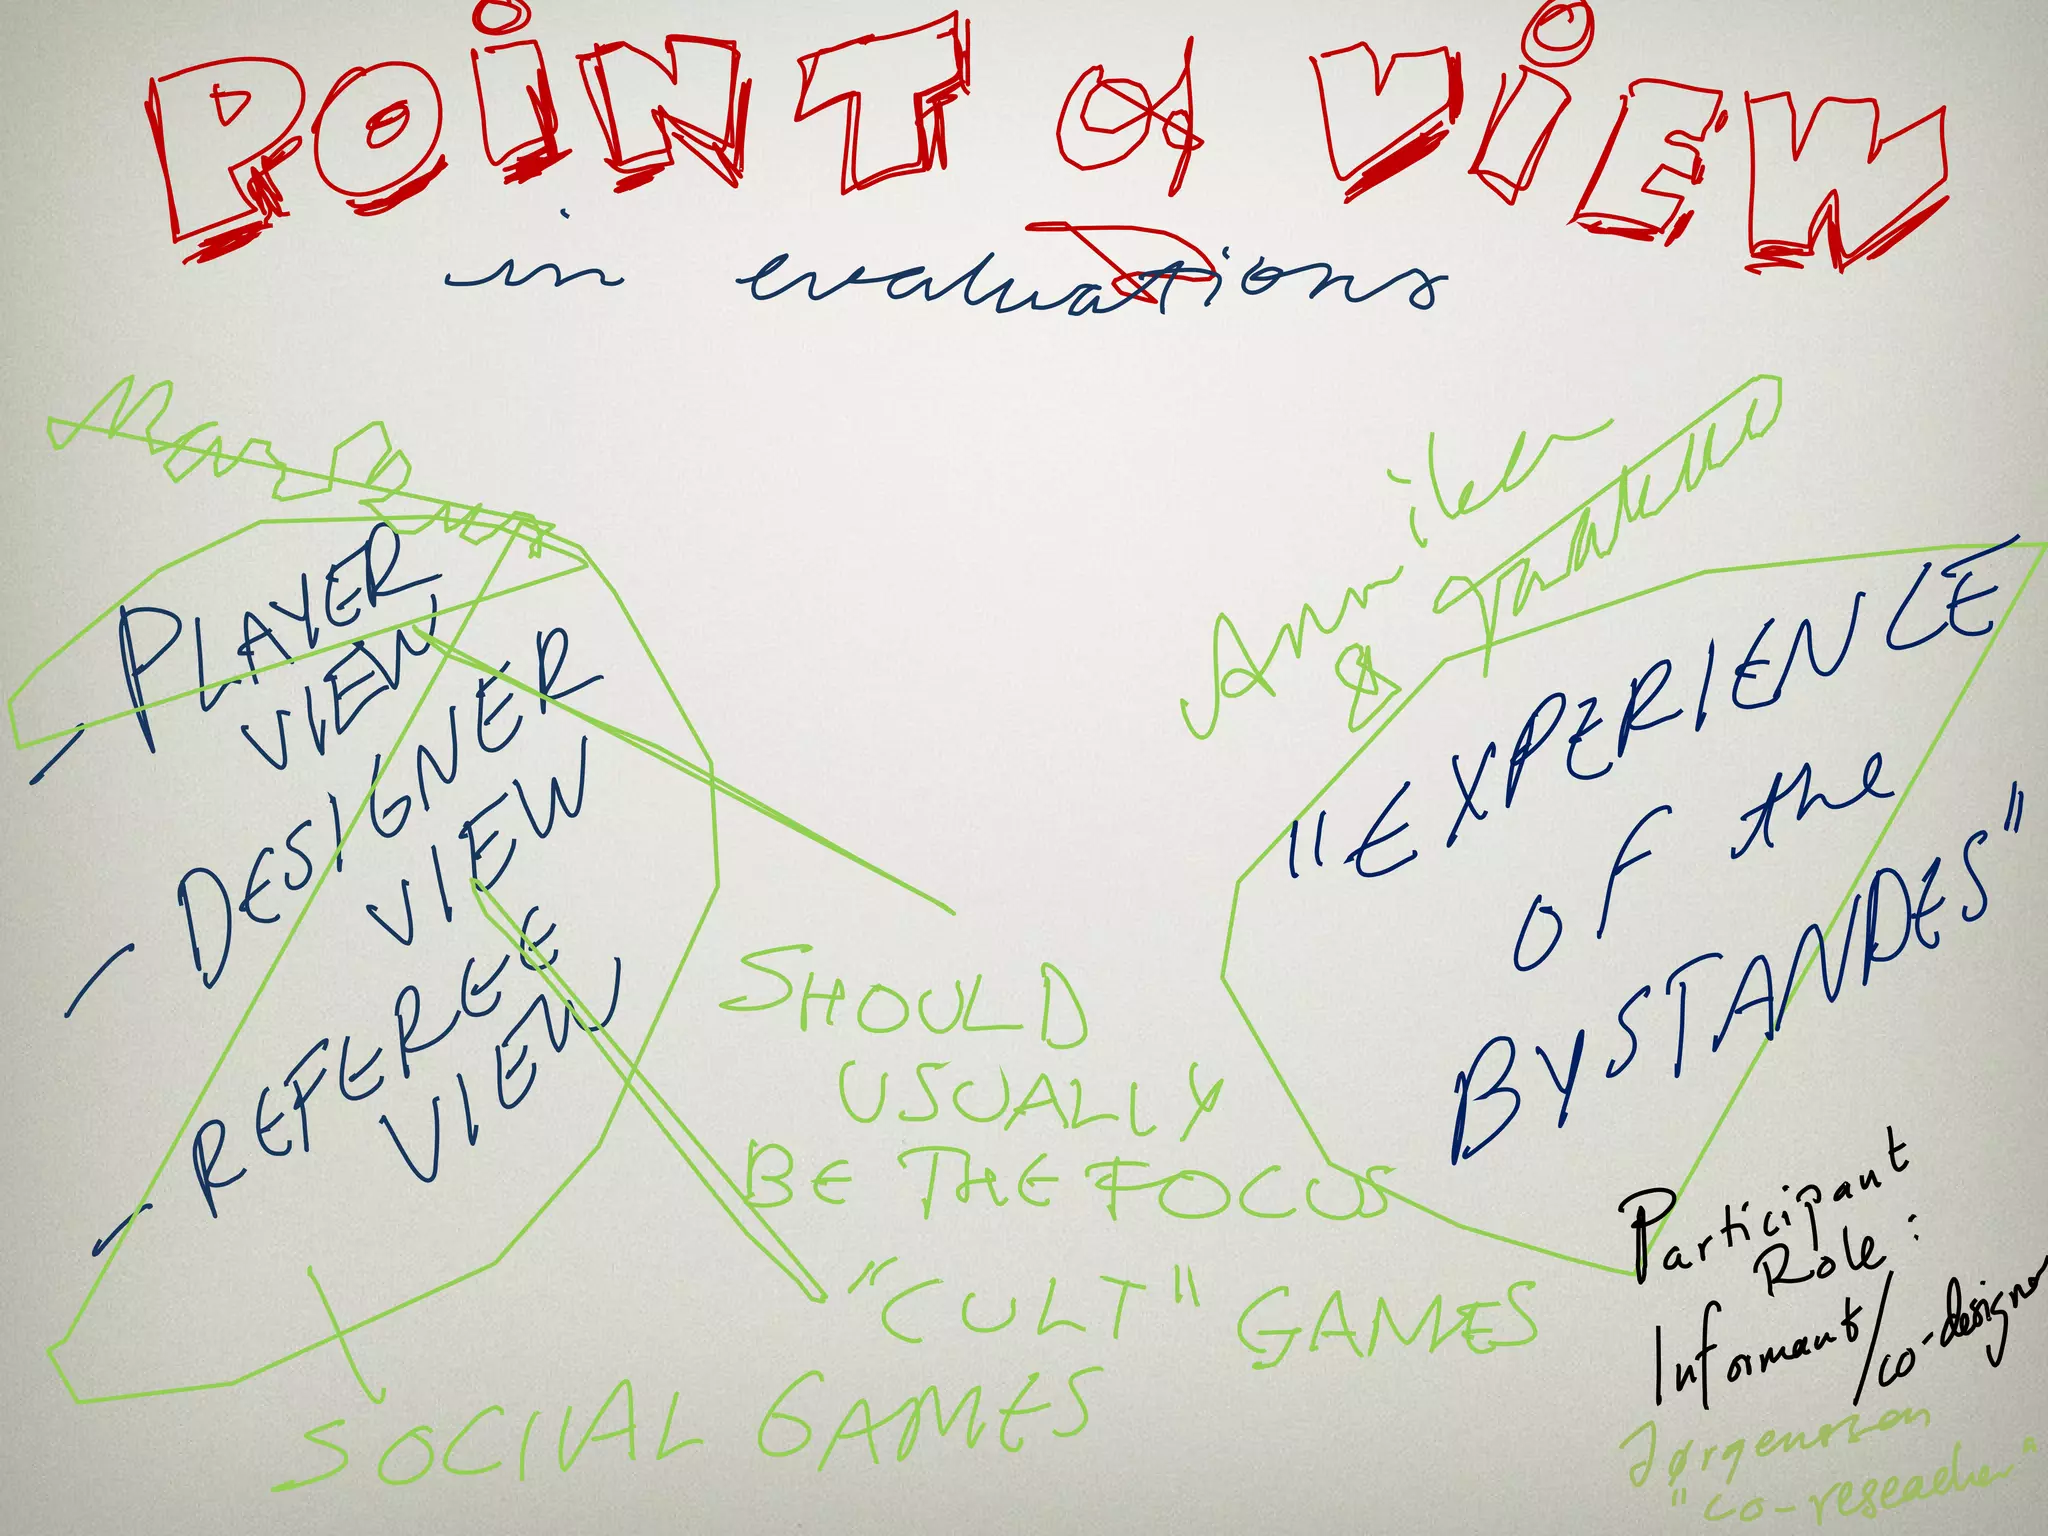 POiNT of ViEW
in evaluations
- PLAYER
VIEW
- DESIGNER
VIEW
- REFEREE
VIEW
SHOULD
USUALLY
BE THE FOCUS
"CULT" GAMES
SOCIAL GAMES
Annika
&
"EXPERIENCE
OF the
BYSTANDES"
Participant
Role:
Informant/co-designer
Jørgenssen
"co-reseacher"